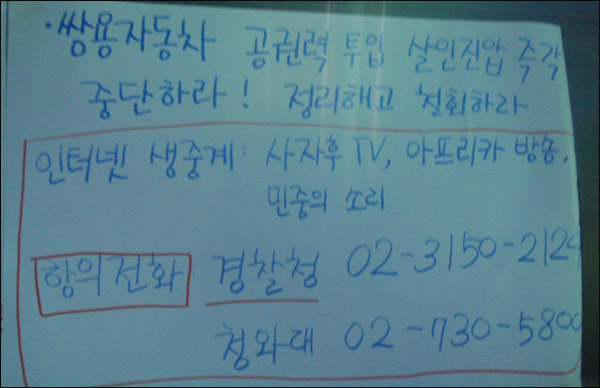 ·쌍용자동차 공권력 투입 살인진압 즉각
중단하라! 정리해고 철회하라
인터넷 생중계: 사자후TV, 아프리카 방송,
민중의 소리
항의전화 경찰청 02-3150-2124
청와대 02-730-5800